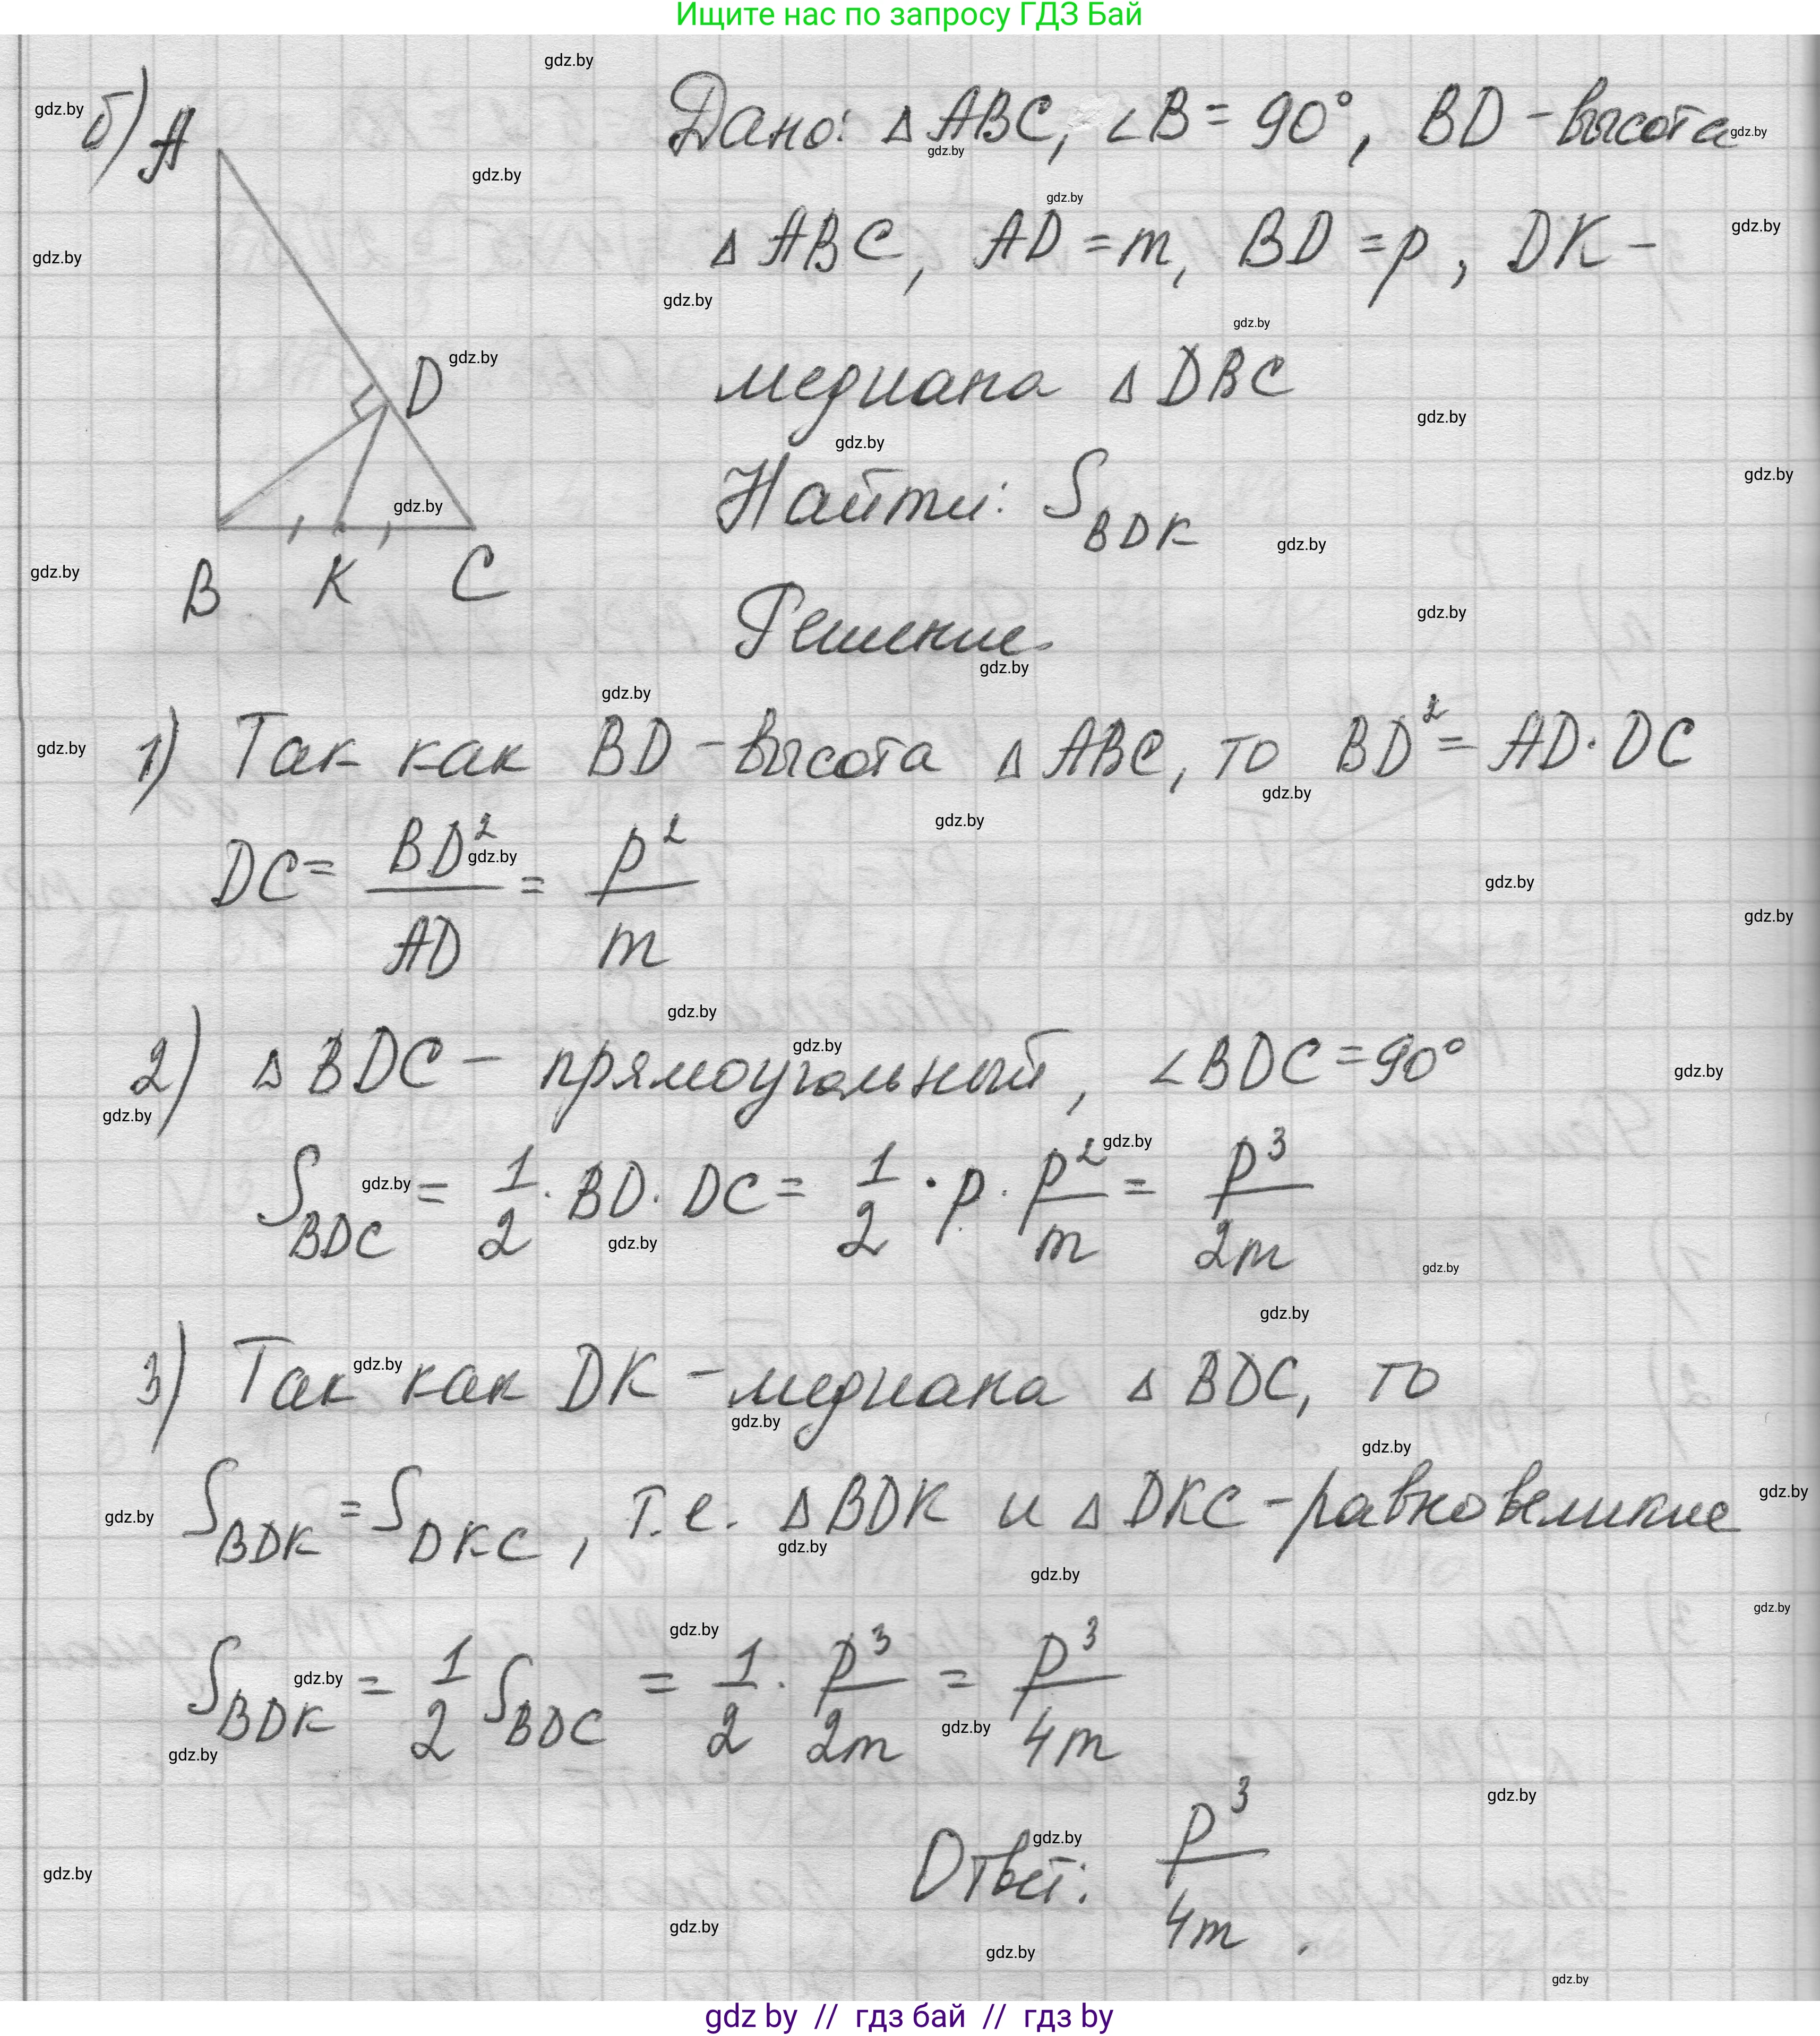 Ищите нас по запросу ГДЗ Бай
б) A
Дано: △ABC, ∠B = 90°, BD - высота
△ABC, AD = m, BD = p, DK -
медиана △DBC
D
Найти: S_BDK
B K C
Решение.
1) Так как BD - высота △ABC, то BD² = AD · DC
DC = BD²/AD = p²/m
2) △BDC - прямоугольный, ∠BDC = 90°
S_BDC = 1/2 · BD · DC = 1/2 · p · p²/m = p³/2m
3) Так как DK - медиана △BDC, то
S_BDK = S_DKC, т.е. △BDK и △DKC - равновеликие
S_BDK = 1/2 S_BDC = 1/2 · p³/2m = p³/4m
Ответ: p³/4m.
gdz by // гдз бай // гдз by